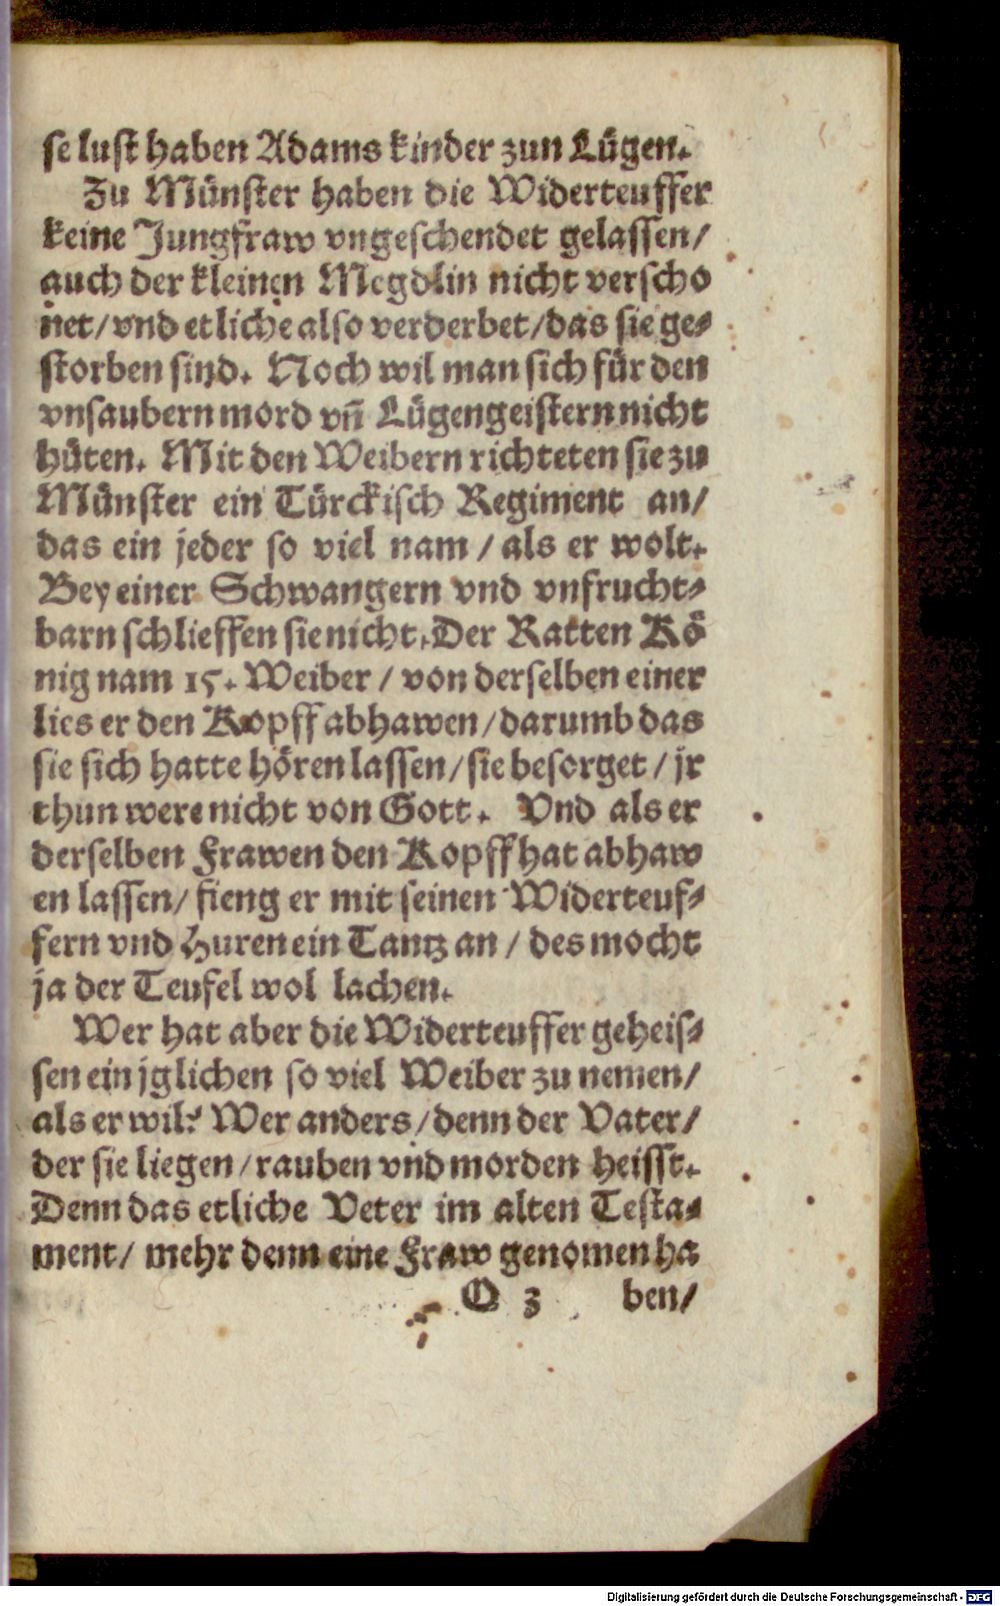 se lust haben Adams kinder zun Lügen.
Zu Münster haben die Widerteuffer
keine Jungfraw vngeschendet gelassen/
auch der kleinen Megdlin nicht verscho
net/ vnd etliche also verderbet/ das sie ge-
storben sind. Noch wil man sich für den
vnsaubern mord vn̄ Lügengeistern nicht
hüten. Mit den Weibern richteten sie zu
Münster ein Türckisch Regiment an/
das ein jeder so viel nam / als er wolt.
Bey einer Schwangern vnd vnfrucht-
barn schlieffen sie nicht. Der Ratten Kö
nig nam 15. Weiber / von derselben einer
lies er den Kopff abhawen/ darumb das
sie sich hatte hören lassen/ sie besorget / jr
thun were nicht von Gott. Vnd als er
derselben Frawen den Kopff hat abhaw
en lassen/ fieng er mit seinen Widerteuf-
fern vnd Huren ein Tantz an / des mocht
ja der Teufel wol lachen.
Wer hat aber die Widerteuffer geheis-
sen ein jglichen so viel Weiber zu nemen/
als er wil? Wer anders/ denn der Vater/
der sie liegen/ rauben vnd morden heisst.
Denn das etliche Veter im alten Testa-
ment/ mehr denn eine Fraw genomen ha
O 3 ben/
Digitalisierung gefördert durch die Deutsche Forschungsgemeinschaft - DFG